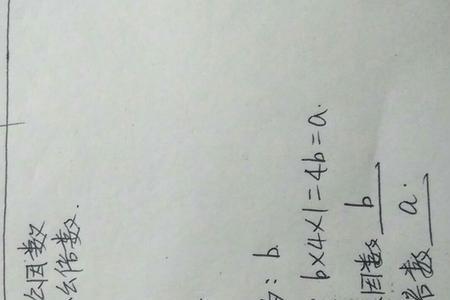 公因数
公倍数.
: b
b×4×1=4b=a.
因数 b
倍数 a.